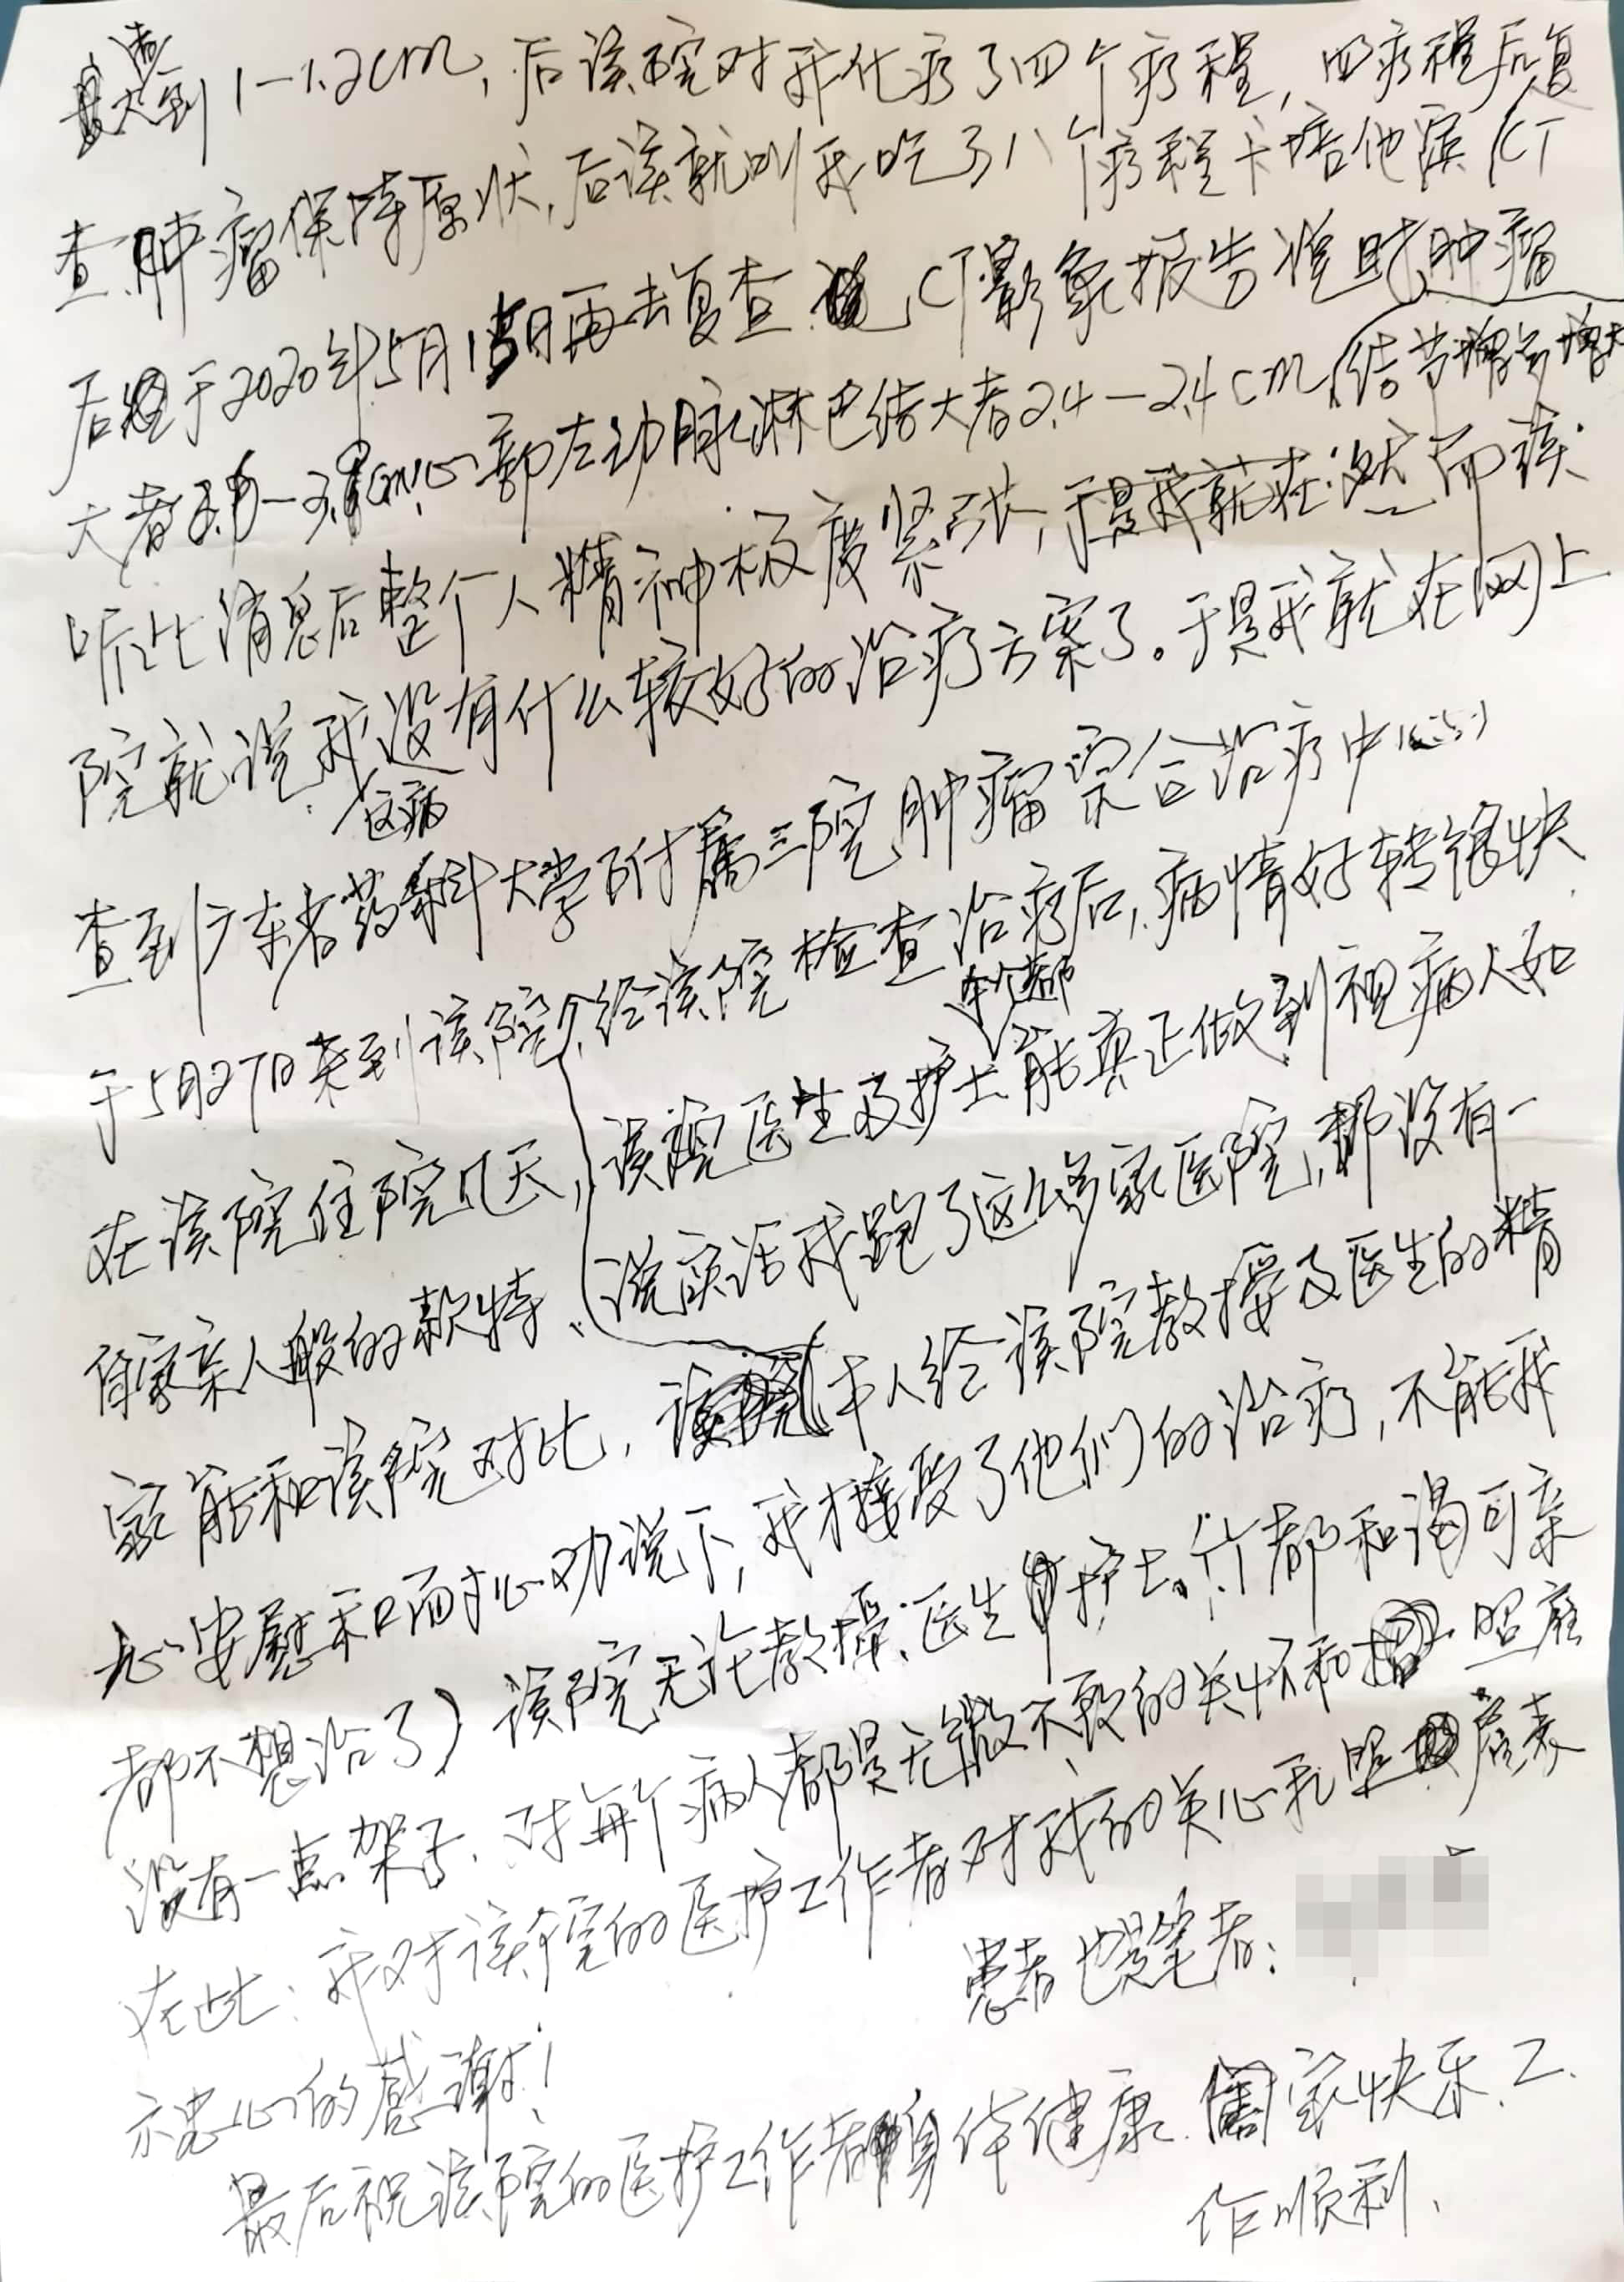 到1-1.2cm，后该院对我化疗了四个疗程，四疗程后复
查肿瘤保持原状，后该就叫我吃了八个疗程卡培他滨 CT
后于2020年5月15日再去复查，CT影象报告 肿瘤
大者 心部左动脉淋巴结大者2.4-2.4cm 结节增多增大
听此消息后整个人精神极度紧张，于是我就在 而该
院就说我没有什么较好的治疗方案了。于是我就在网上
这病
查到广东省药科大学附属三院肿瘤综合治疗中心
于5月27日来到该院，经该院检查治疗后，病情好转很快
个个都
在该院住院几天，该院医生及护士能真正做到视病人如
自家亲人般的款待、说实话我跑了这么多家医院，都没有一
家能和该院对比，（本人经该院教授及医生的精
心安慰和口而才心劝说下，我才接受了他们的治疗，不能我
都不想治了）该院无论教授、医生 护士。个个都和谒可亲
没有一点架子、对每个病人都是无微不致的关怀和 照应
在此：我对该院的医护工作者对我的关心和照应表
示忠心的感谢！
患者也是笔者：
最后祝该院的医护工作者身体健康、阖家快乐、工
作顺利、